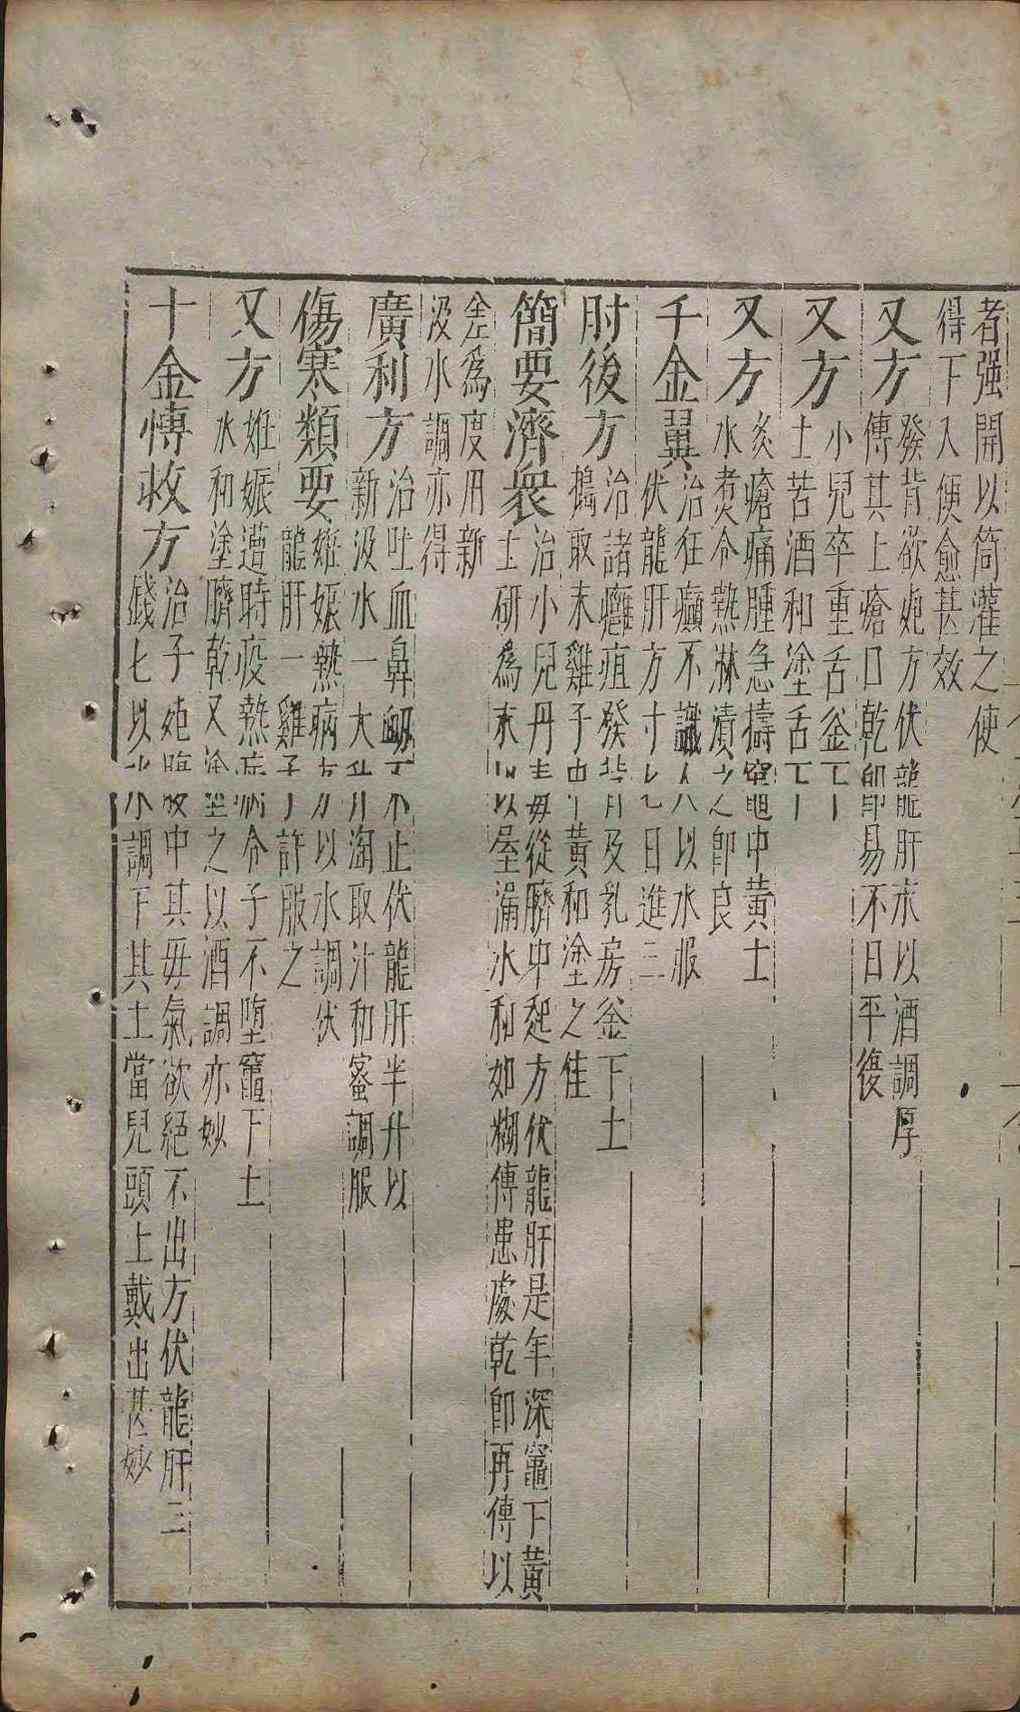 者强開以筒灌之使
得下入便愈甚效
又方 發背欲死方伏龍肝末以酒調厚
傅其上瘡口乾即易不日平復
又方 小兒卒重舌釜下
土苦酒和塗舌下
又方 灸瘡痛腫急擣竈中黄土
水煮令熱淋漬之即良
千金翼 治狂癲不識人以水服
伏龍肝方寸匕日進三
肘後方 治諸癰疽發背及乳房釜下土
搗取末雞子中黄和塗之佳
簡要濟衆 治小兒丹毒從臍中起方伏龍肝是年深竈下黄
土研為末以屋漏水和如糊傅患處乾即再傅以
差為度用新
汲水調亦得
廣利方 治吐血鼻衂不止伏龍肝半升以
新汲水一大升淘取汁和蜜調服
傷寒類要 姙娠熱病方以水調伏
龍肝一雞子許服之
又方 姙娠遭時疫熱病令子不墮竈下土
水和塗臍乾又塗之以酒調亦妙
十金愽救方 治子死腹中其母氣欲絶不出方伏龍肝三
錢匕以水調下其土當兒頭上戴出甚妙